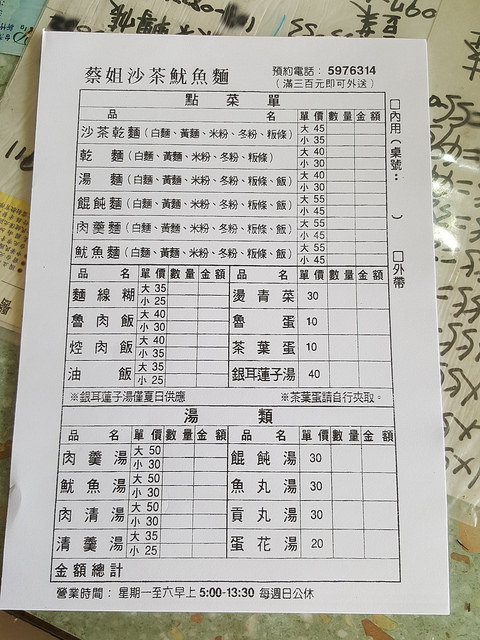 蔡姐沙茶魷魚麵
預約電話：5976314
（滿三百元即可外送）
點菜單
品名 單價 數量 金額
沙茶乾麵（白麵、黃麵、米粉、冬粉、粄條） 大 45 小 35
乾麵（白麵、黃麵、米粉、冬粉、粄條） 大 40 小 30
湯麵（白麵、黃麵、米粉、冬粉、粄條、飯） 大 40 小 30
餛飩麵（白麵、黃麵、米粉、冬粉、粄條、飯） 大 55 小 45
肉羹麵（白麵、黃麵、米粉、冬粉、粄條、飯） 大 55 小 45
魷魚麵（白麵、黃麵、米粉、冬粉、粄條、飯） 大 55 小 45
□內用（桌號： ）
□外帶
品名 單價 數量 金額 品名 單價 數量 金額
麵線糊 大 35 小 25 燙青菜 30
魯肉飯 大 40 小 30 魯蛋 10
焢肉飯 大 40 小 35 茶葉蛋 10
油飯 大 35 小 25 銀耳蓮子湯 40
※銀耳蓮子湯僅夏日供應 ※茶葉蛋請自行夾取。
湯類
品名 單價 數量 金額 品名 單價 數量 金額
肉羹湯 大 50 小 30 餛飩湯 30
魷魚湯 大 50 小 30 魚丸湯 30
肉清湯 大 50 小 30 貢丸湯 30
清羹湯 大 35 小 25 蛋花湯 20
金額總計
營業時間： 星期一至六早上 5:00-13:30 每週日公休